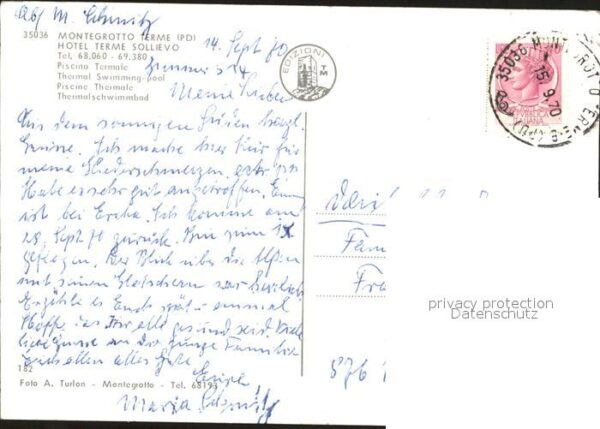 Abs M. Schmitz
35036 MONTEGROTTO TERME (PD)
HOTEL TERME SOLLIEVO
Tel. 68.060 - 69.380
Piscina Termale
Thermal Swimming-pool
Piscine Thermale
Thermalschwimmbad
14. Sept 70
EDIZIONI
TM
35036 MONT
15.9.70
ITALIANA
Meine Lieben
Aus dem sonnigen Süden herzl.
Grüsse. Ich mache hier Kur für
meine Gliederschmerzen,
Habe es sehr gut angetroffen.
ist bei Erika. Ich komme am
28. Sept 70 zurück. Bin zum
geflogen. Der Blick über die Alpen
mit seinen Gletschern war herrlich
Erzähle es Euch später einmal
Hoffe das Ihr alle gesund seid. Viele
liebe Grüsse an die junge Familie
Euch allen alles Gute.
Eure
Maria Schmitz
Fam
Fr
576
privacy protection
Datenschutz
182
Foto A. Turlon - Montegrotto - Tel. 68193